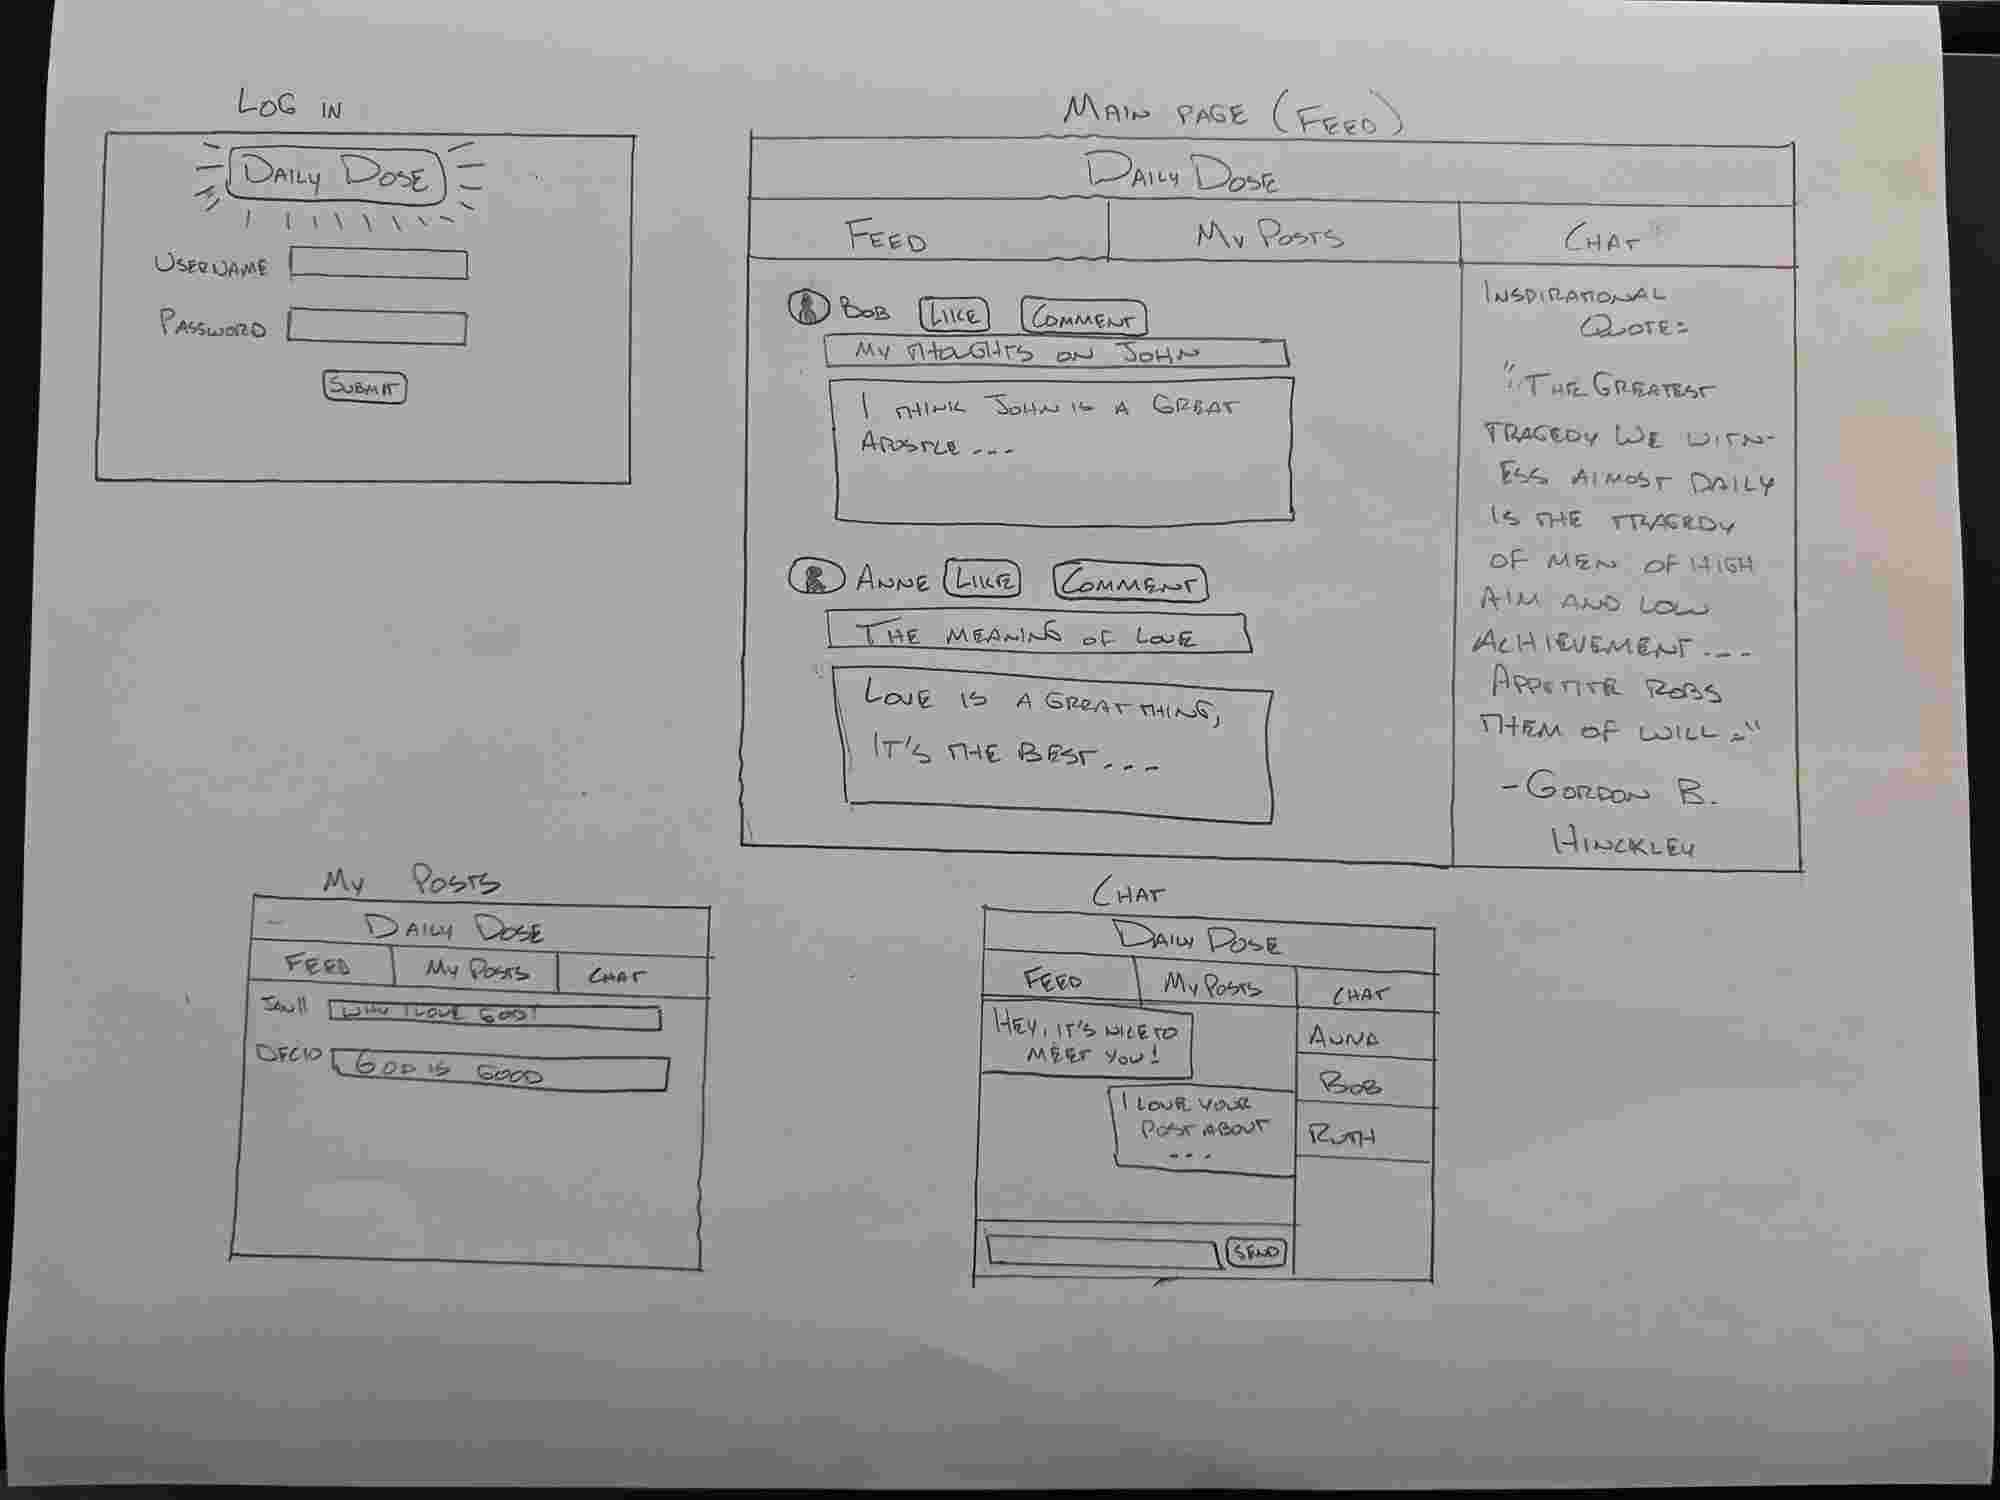 LOG IN
DAILY DOSE
USERNAME
PASSWORD
SUBMIT
MAIN PAGE (FEED)
DAILY DOSE
FEED
MY POSTS
CHAT
BOB
LIKE
COMMENT
MY THOUGHTS ON JOHN
I THINK JOHN IS A GREAT
APOSTLE ---
ANNE
LIKE
COMMENT
THE MEANING OF LOVE
LOVE IS A GREAT THING,
IT'S THE BEST ...
INSPIRATIONAL
QUOTE:
"THE GREATEST
TRAGEDY WE WITN-
ESS ALMOST DAILY
IS THE TRAGEDY
OF MEN OF HIGH
AIM AND LOW
ACHIEVEMENT ...
APPETITE ROBS
THEM OF WILL."
- GORDON B.
HINCKLEY
MY POSTS
DAILY DOSE
FEED
MY POSTS
CHAT
JAN 11
WHY I LOVE GOD!
DEC 10
GOD IS GOOD
CHAT
DAILY DOSE
FEED
MY POSTS
CHAT
HEY, IT'S NICE TO
MEET YOU!
I LOVE YOUR
POST ABOUT
...
SEND
ANNA
BOB
RUTH